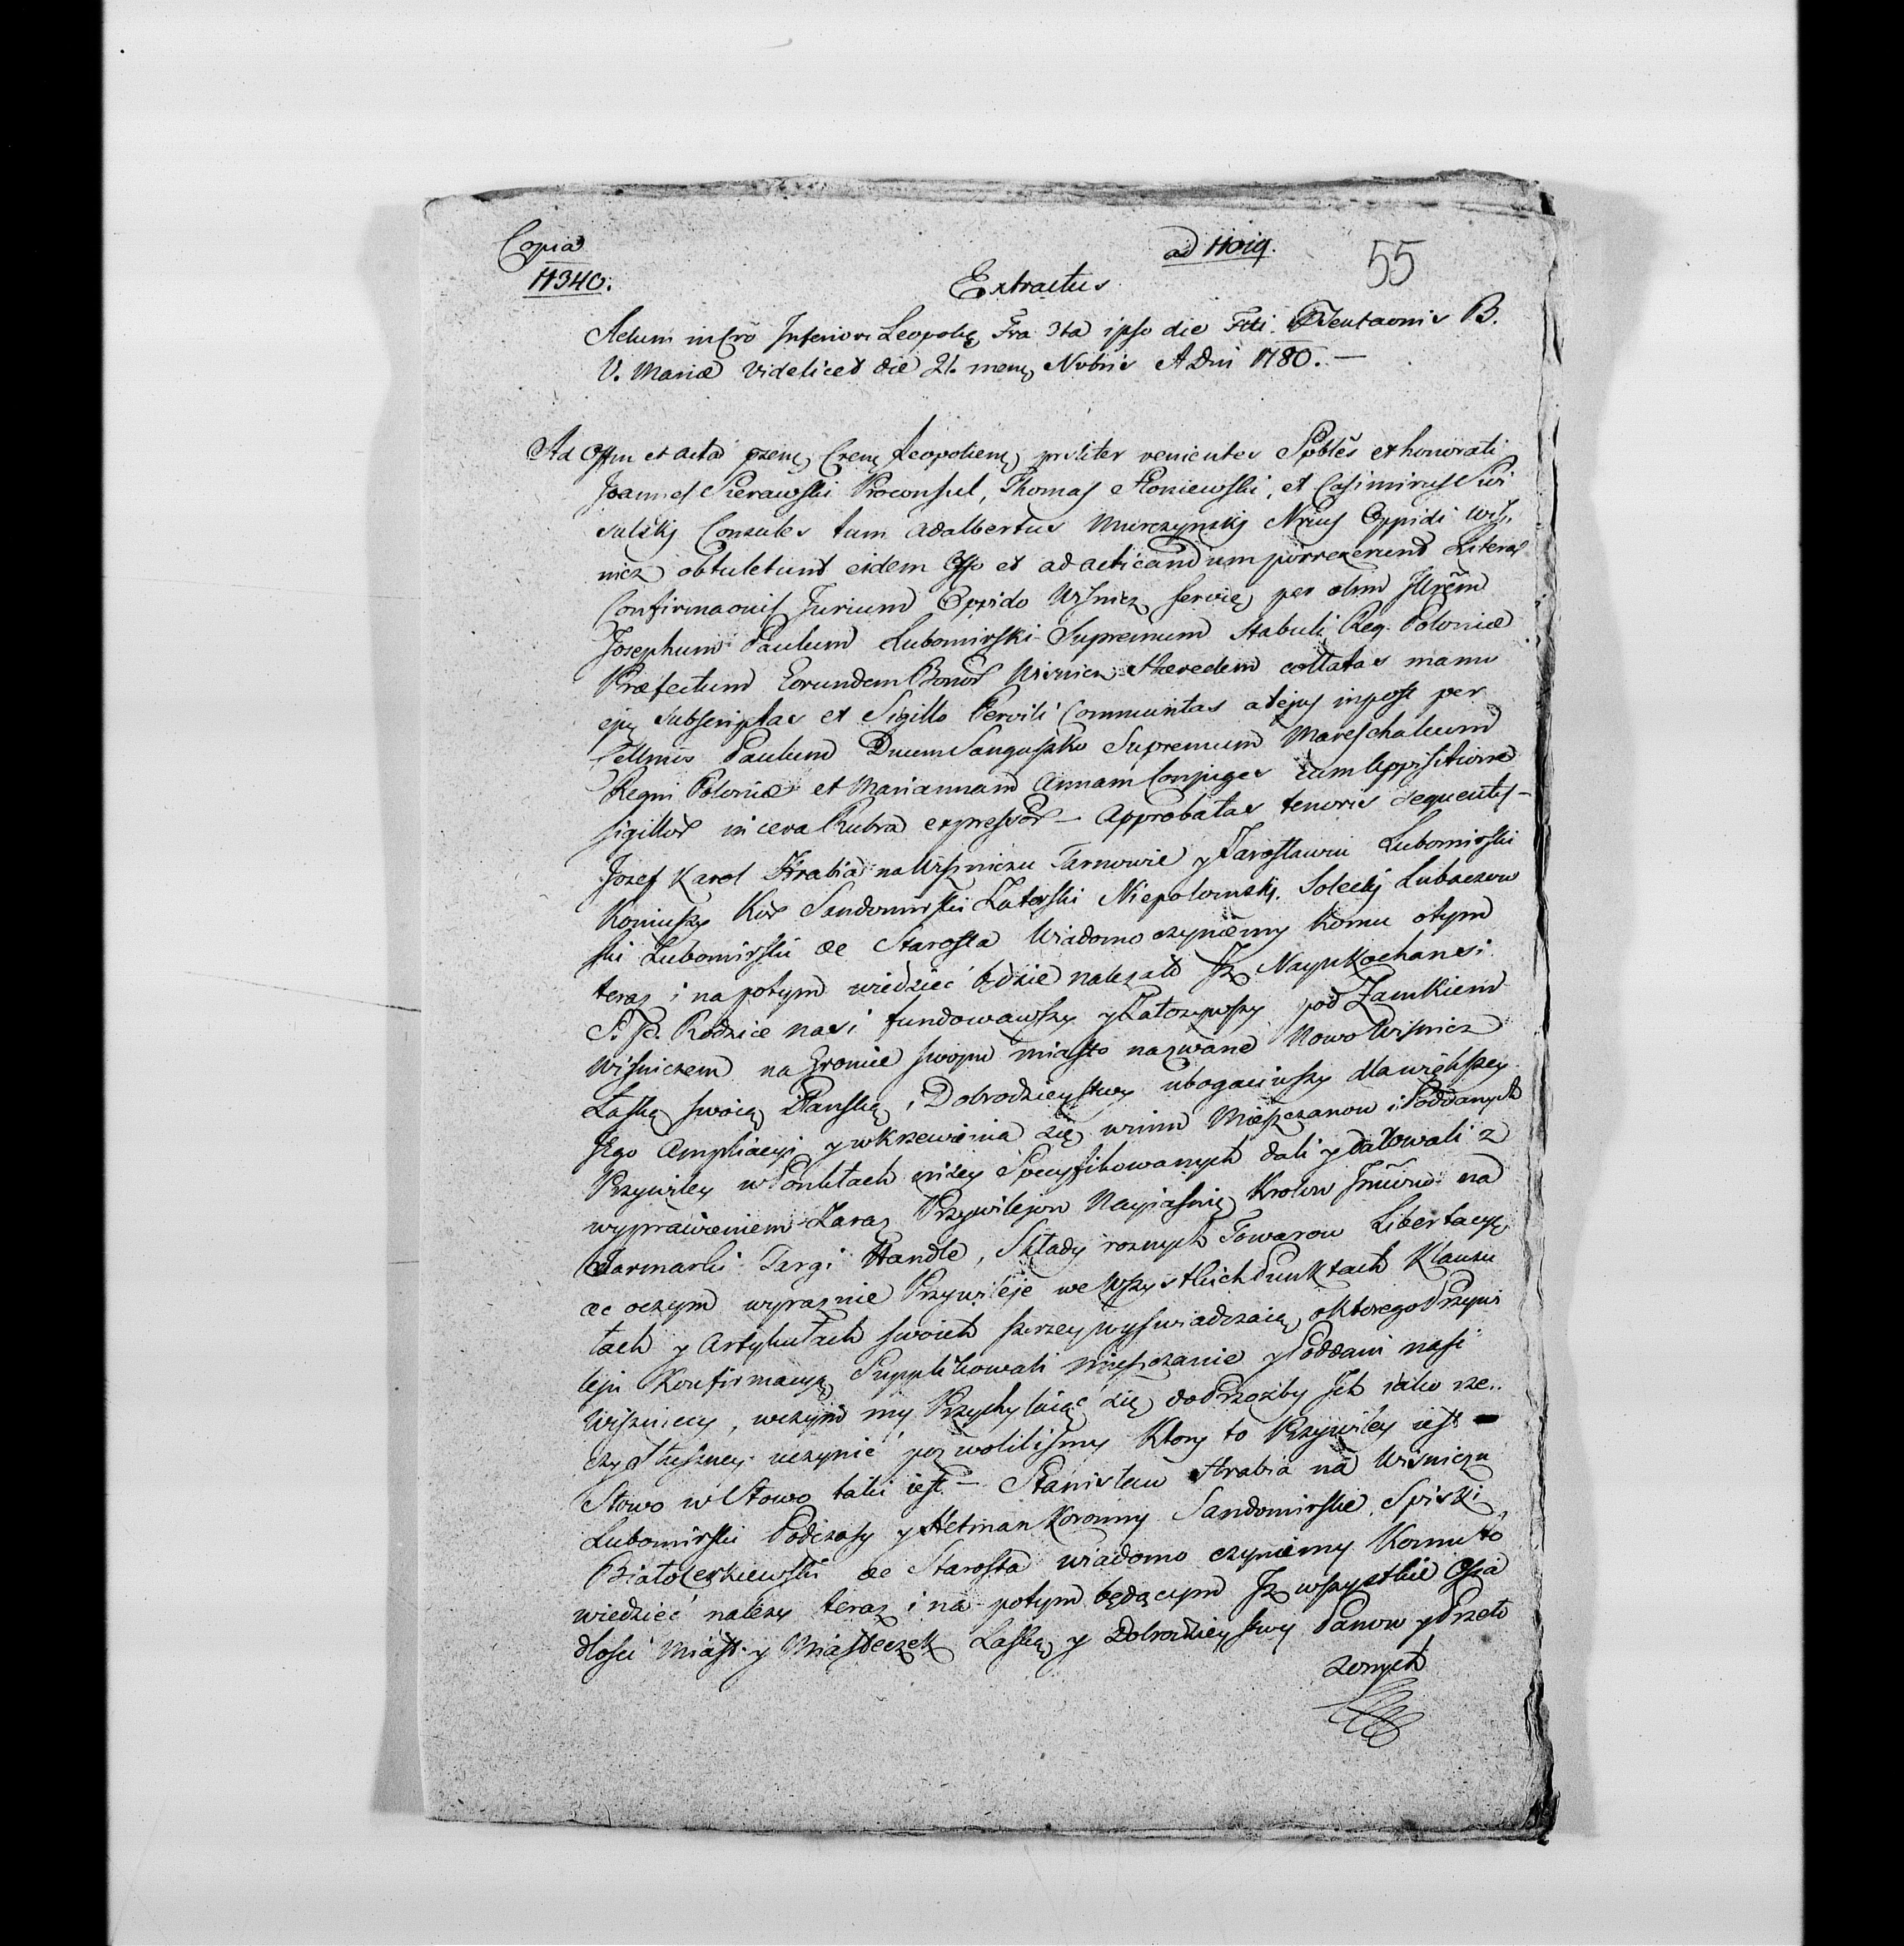 Copia
11340.
ad 11019.
55
Extractus
Actum in Cro Inferiori Leopolię Fra 3tia ipso die Fsti Psentaonis B.
V. Mariæ videlicet die 21. mensę Nvbris A Dni 1780. —
Ad Offm et Acta pzenę Crenę Leopolienę psliter venientes Spbles et honorati
Joannes Sierawski Proconsul, Thomas Floniewski, et Casimirus Swi
salski Consules tum Adalbertus Murczynskj Nrius Oppidi Wis,
nicz obtulerunt eidem Offo et ad acticandum porrexerunt Literas
Confirmaonis Jurium Oppido Wisnicz servię per olim Jllrem
Josephum Paulum Lubomirski Supremum Stabuli Reg. Poloniæ
Præfectum Eorundem Bonor Wisnicz Hæredem collatas manu
ejus subscriptas et Sigillo communitas ac ejus inpost per
Cellmus Paulum Ducem Sanguszko Supremum Mareschalcum
Regni Poloniæ et Mariannam Annam Conjuges cum Appositione
sigillor in cera Rubra expressor — Approbatas tenoris sequentis —
Jozef Karol Hrabia na Wiszniczu Tarnowie y Jarosławiu Lubomirski
Koniuszy Kor Sandomirski Zatorski Niepolomskj. Soleckj Lubaczow
ski Lubomirski &c Starosta Wiadomo czyniemy komu otym
teraz i na potym wiedzieć będzie należało Jż Nayukochansi
S. P. Rodzice nasi fundowawszy y Załozywszy pod Zamkiem
Wisniczem na Gruncie swoym miasto nazwane Nowo Wisnicz
Łaską swoią Pańską i Dobrodzieystwy ubogaciwszy dla większey
Jego Ampliacyi y wkrzewienia się wnim Mieszczanow i Poddanych
Przywiley w Ponktach niżey Specyfikowanych dali y darowali z
wyprawieniem Zaraz Przywilejow Nayiaśnię Krolow Jmciow na
Jarmarki Targi Handle, Składy roznych Towarow Libertacyę
&c oczym wyraznie Przywileje we wszystkich Punktach Klauzu
łach y Artykułach swoich szerzey wyswiadczaią, o ktorego Przywi
leju Konfirmacyą Supplikowali mieszczanie y Poddani nasi
Wiszniccy, wczym my Przychylaiąc się do Prozby Jch iako rze..
czy słuszney uczynić pozwolilismy Ktory to Przywiley iest
Słowo w Słowo taki iest — Stanisław Hrabia na Wisniczu
Lubomirski Podczaszy y Hetman Koronny Sandomirskie. Spiski,
Białocerkiewski &c Starosta wiadomo czyniemy Komu to
wiedzieć nalezy teraz i na potym będącym Jż wszystkie Osia
dłosci Miast y Miasteczek Łaską y Dobrodzieystwy Panow y Przeło
zonych